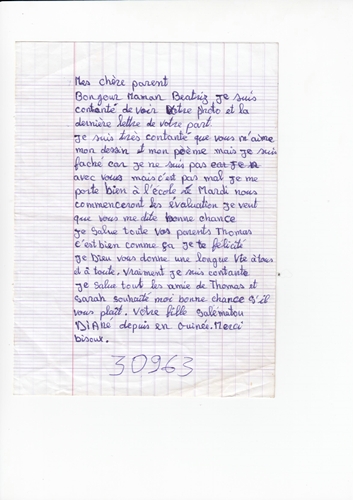 Mes chère parent
Bonjour Maman Beatriz je suis
contanté de voir votre photo et la
dernière lettre de votre part.
Je suis très contanté que vous m'aime
mon dessin et mon poème mais je suis
faché car je ne suis pas car je n
avec vous mais c'est pas mal je me
porte bien à l'école Mardi nous
commenceront les évaluation je veut
que vous me dite bonne chance
Je Salue toute vos parents Thomas
c'est bien comme ça je te félicité
Je Dieu vous donne une longue vie à tous
et à toute. Vraiment je suis contante
Je Salue tout les amie de Thomas et
Sarah souhaité moi bonne chance S'il
vous plaît. Votre fille Salematou
DIANé depuis en Guinée. Merci
bisous.
30963